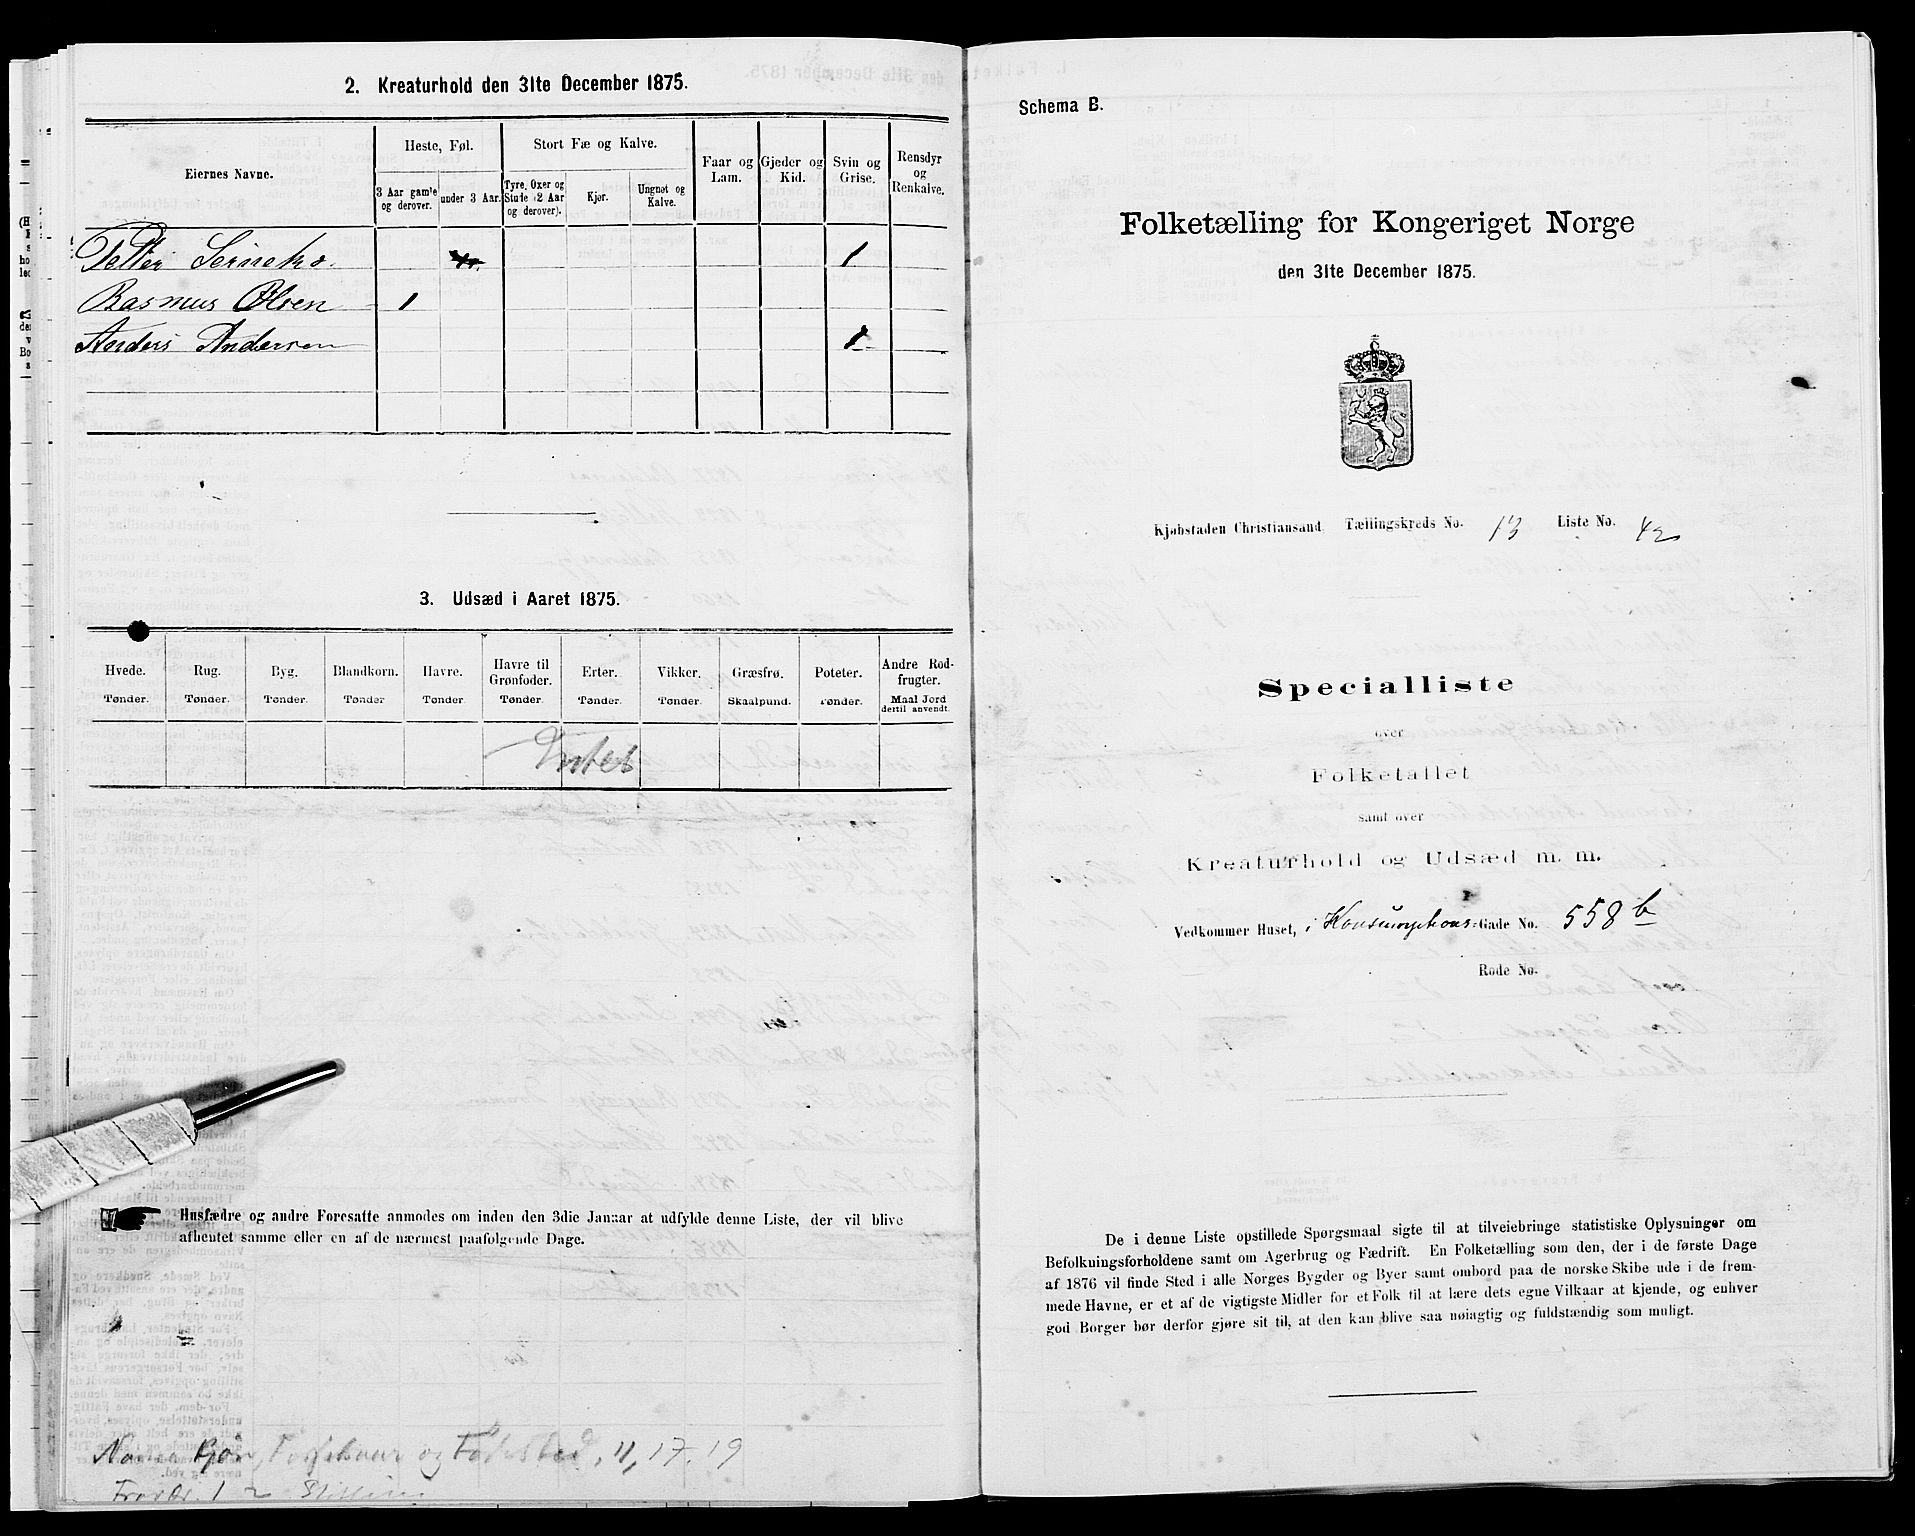 2. Kreaturhold den 31te December 1875.
Eiernes Navne.
Heste, Føl.
Stort Fæ og Kalve.
Faar og Lam.
Gjeder og Kid.
Svin og Grise.
Rensdyr og Renkalve.
3 Aar gamle og derover.
under 3 Aar.
Tyre, Oxer og Stude (2 Aar og derover).
Kjør.
Ungnøt og Kalve.
Petter 1
Rasmus Olsen 1
Anders Andersen 1
3. Udsæd i Aaret 1875.
Hvede. Rug. Byg. Blandkorn. Havre. Havre til Grønfoder. Erter. Vikker. Græsfrø. Poteter. Andre Rodfrugter.
Tønder. Tønder. Tønder. Tønder Tønder. Tønder. Tønder. Tønder. Skaalpund. Tønder. Maal Jord dertil anvendt.
Intet
Husfædre og andre Foresatte anmodes om inden den 3die Januar at udfylde denne Liste, der vil blive
afhentet samme eller en af de nærmest paafølgende Dage.
og Fødested, 11, 17. 19
Schema B.
Folketælling for Kongeriget Norge
den 31te December 1875.
Kjøbstaden Christiansand Tællingskreds No. 13 Liste No. 42
Specialliste
over
Folketallet
samt over
Kreaturhold og Udsæd m. m.
Vedkommer Huset, i Konsumptions-Gade No. 558 b
Rode No.
De i denne Liste opstillede Spørgsmaal sigte til at tilveiebringe statistiske Oplysninger om
Befolkningsforholdene samt om Agerbrug og Fædrift. En Folketælling som den, der i de første Dage
af 1876 vil finde Sted i alle Norges Bygder og Byer samt ombord paa de norske Skibe ude i de frem-
mede Havne, er et af de vigtigste Midler for et Folk til at lære dets egne Vilkaar at kjende, og enhver
god Borger bør derfor gjøre sit til, at den kan blive saa nøiagtig og fuldstændig som muligt.